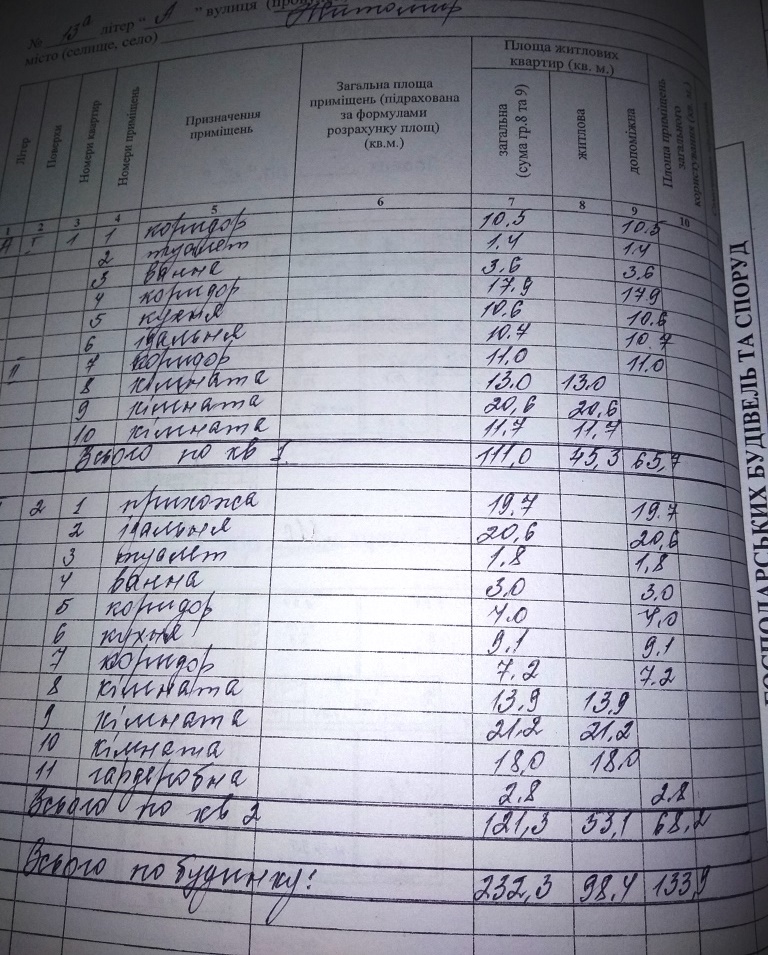 № 13а літер " А " вулиця
місто (селище, село) Житомир
Літер Поверхи Номери квартир Номери приміщень Призначення приміщень Загальна площа приміщень (підрахована за формулами розрахунку площ) (кв.м.) Площа житлових квартир (кв. м.) загальна (сума гр.8 та 9) житлова допоміжна Площа приміщень загального користування (кв. м.)
1 2 3 4 5 6 7 8 9 10
А І 1 1 коридор 10.5 10.5
2 туалет 1.4 1.4
3 ванна 3.6 3.6
4 коридор 17.9 17.9
5 кухня 10.6 10.6
6 їдальня 10.7 10.7
ІІ 7 коридор 11,0 11.0
8 кімната 13.0 13.0
9 кімната 20,6 20,6
10 кімната 11,7 11,7
Всього по кв 1 111,0 45,3 65,7
2 1 прихожа 19.7 19.7
2 їдальня 20,6 20,6
3 туалет 1,8 1,8
4 ванна 3.0 3.0
5 коридор 4.0 4.0
6 кухня 9.1 9.1
7 коридор 7.2 7.2
8 кімната 13,9 13,9
9 кімната 21.2 21,2
10 кімната 18,0 18.0
11 гардеробна 2.8 2.8
Всього по кв 2 121,3 53,1 68,2
Всього по будинку: 232,3 98,4 133,9
ГОСПОДАРСЬКИХ БУДІВЕЛЬ ТА СПОРУД